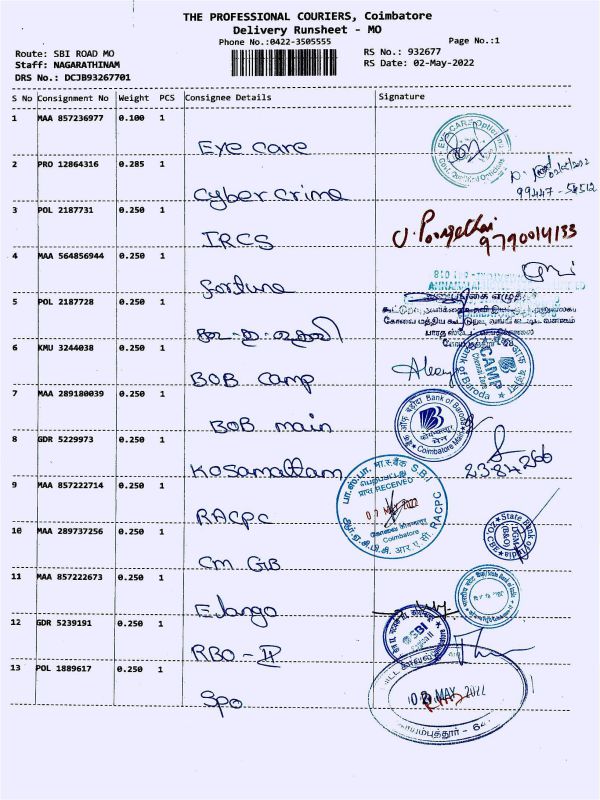 THE PROFESSIONAL COURIERS, Coimbatore
Delivery Runsheet - MO
Phone No.:0422-3505555
Page No.:1
Route: SBI ROAD MO
RS No.: 932677
Staff: NAGARATHINAM
RS Date: 02-May-2022
DRS No.: DCJB93267701
S No Consignment No Weight PCS Consignee Details Signature
1 MAA 857236977 0.100 1
Eye care
EYE CARE Opticians
2 PRO 12864316 0.285 1
Cyber crime
99447-58512
3 POL 2187731 0.250 1
IRCS
9790014133
4 MAA 564856944 0.250 1
fortune
5 POL 2187728 0.250 1
6 KMU 3244038 0.250 1
BOB camp
CAMP
Bank of Baroda
7 MAA 289180039 0.250 1
BOB main
Bank of Baroda
Coimbatore Main
8 GDR 5229973 0.250 1
Kosamattam
9 MAA 857222714 0.250 1
RACPC
भा.स्टे.बैंक S.B.I
RECEIVED
MAY 2022
Coimbatore
आर.ए.सी.पी.सी. RACPC
10 MAA 289737256 0.250 1
Cm GB
State Bank of India
11 MAA 857222673 0.250 1
Elango
12 GDR 5239191 0.250 1
RBO - II
SBI
13 POL 1889617 0.250 1
Spo
02 MAY 2022